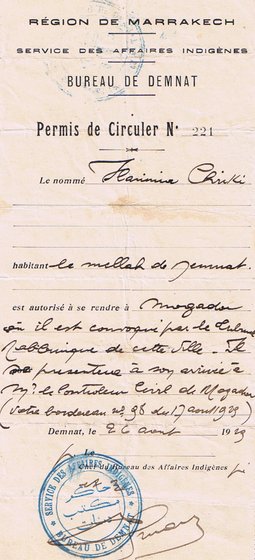 RÉGION DE MARRAKECH
SERVICE DES AFFAIRES INDIGÈNES
BUREAU DE DEMNAT
Permis de Circuler N° 221
Le nommé Chriki
habitant le mellah de Demnat.
est autorisé à se rendre à Mogador
où il est convoqué par le Tribunal
Rabbinique de cette ville. Il
se présentera à son arrivée à
Mr le Contrôleur Civil de Mogador
(Votre bordereau n° 98 du 17 août 1929
Demnat, le 26 août 1929
Le
Chef du Bureau des Affaires Indigènes
SERVICE DES AFFAIRES INDIGÈNES
BUREAU DE DEMNAT